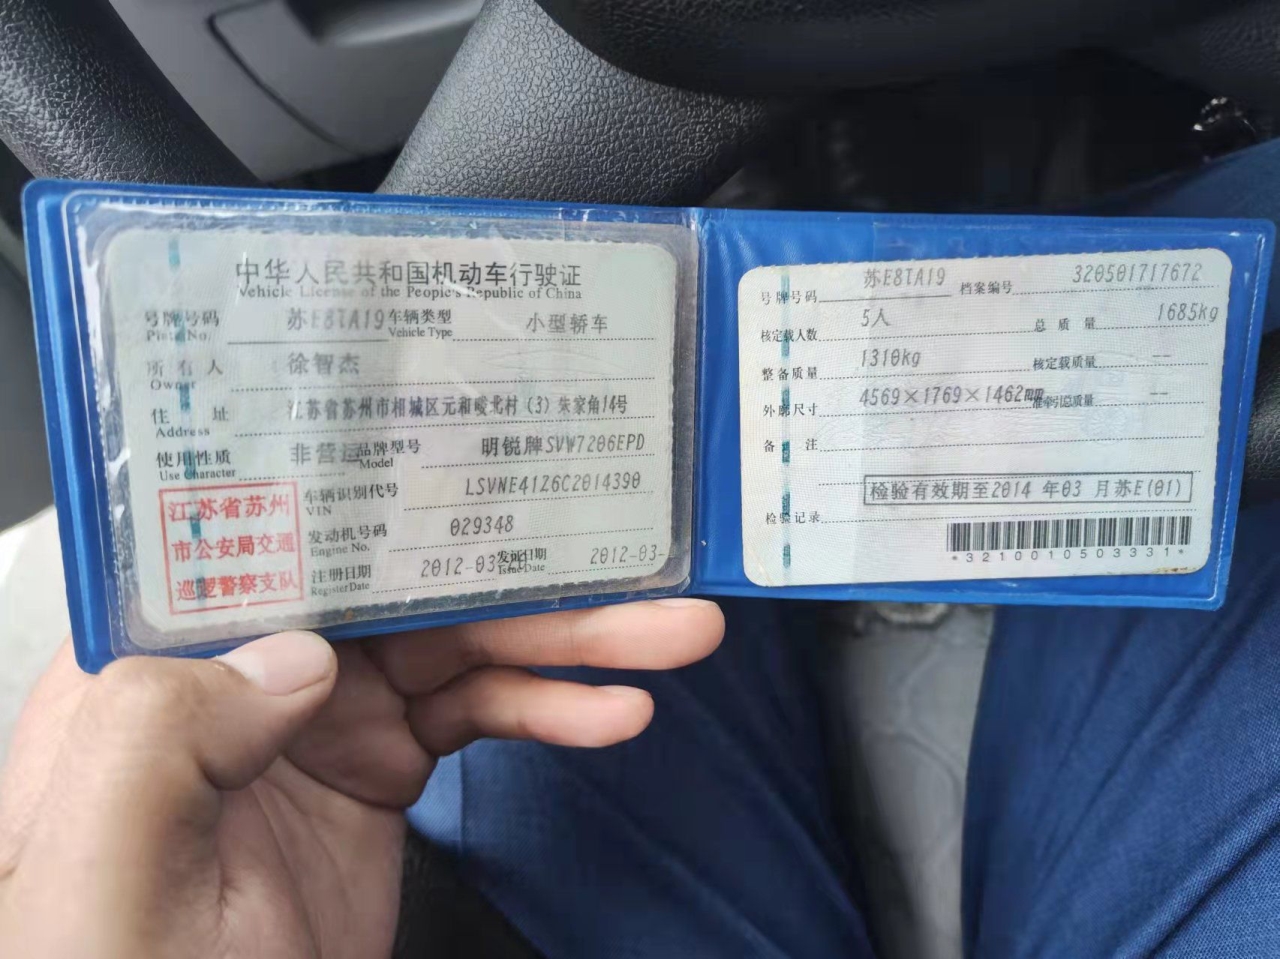 中华人民共和国机动车行驶证
Vehicle License of the People's Republic of China
号牌号码 苏E8TA19 车辆类型 小型轿车
Plate No. Vehicle Type
所有人 徐智杰
Owner
住址 江苏省苏州市相城区元和嗳北村(3)朱家角14号
Address
使用性质 非营运 品牌型号 明锐牌SVW7206EPD
Use Character Model
江苏省苏州
市公安局交通
巡逻警察支队
车辆识别代号 LSVNE41Z6C2014390
VIN
发动机号码 029348
Engine No.
注册日期 2012-03- 发证日期 2012-03-
Register Date Issue Date
号牌号码 苏E8TA19 档案编号 320501717672
核定载人数 5人 总质量 1685kg
整备质量 1310kg 核定载质量 --
外廓尺寸 4569×1769×1462mm 准牵引总质量 --
备注
检验有效期至2014 年03 月苏E(01)
检验记录
*3210010503331*